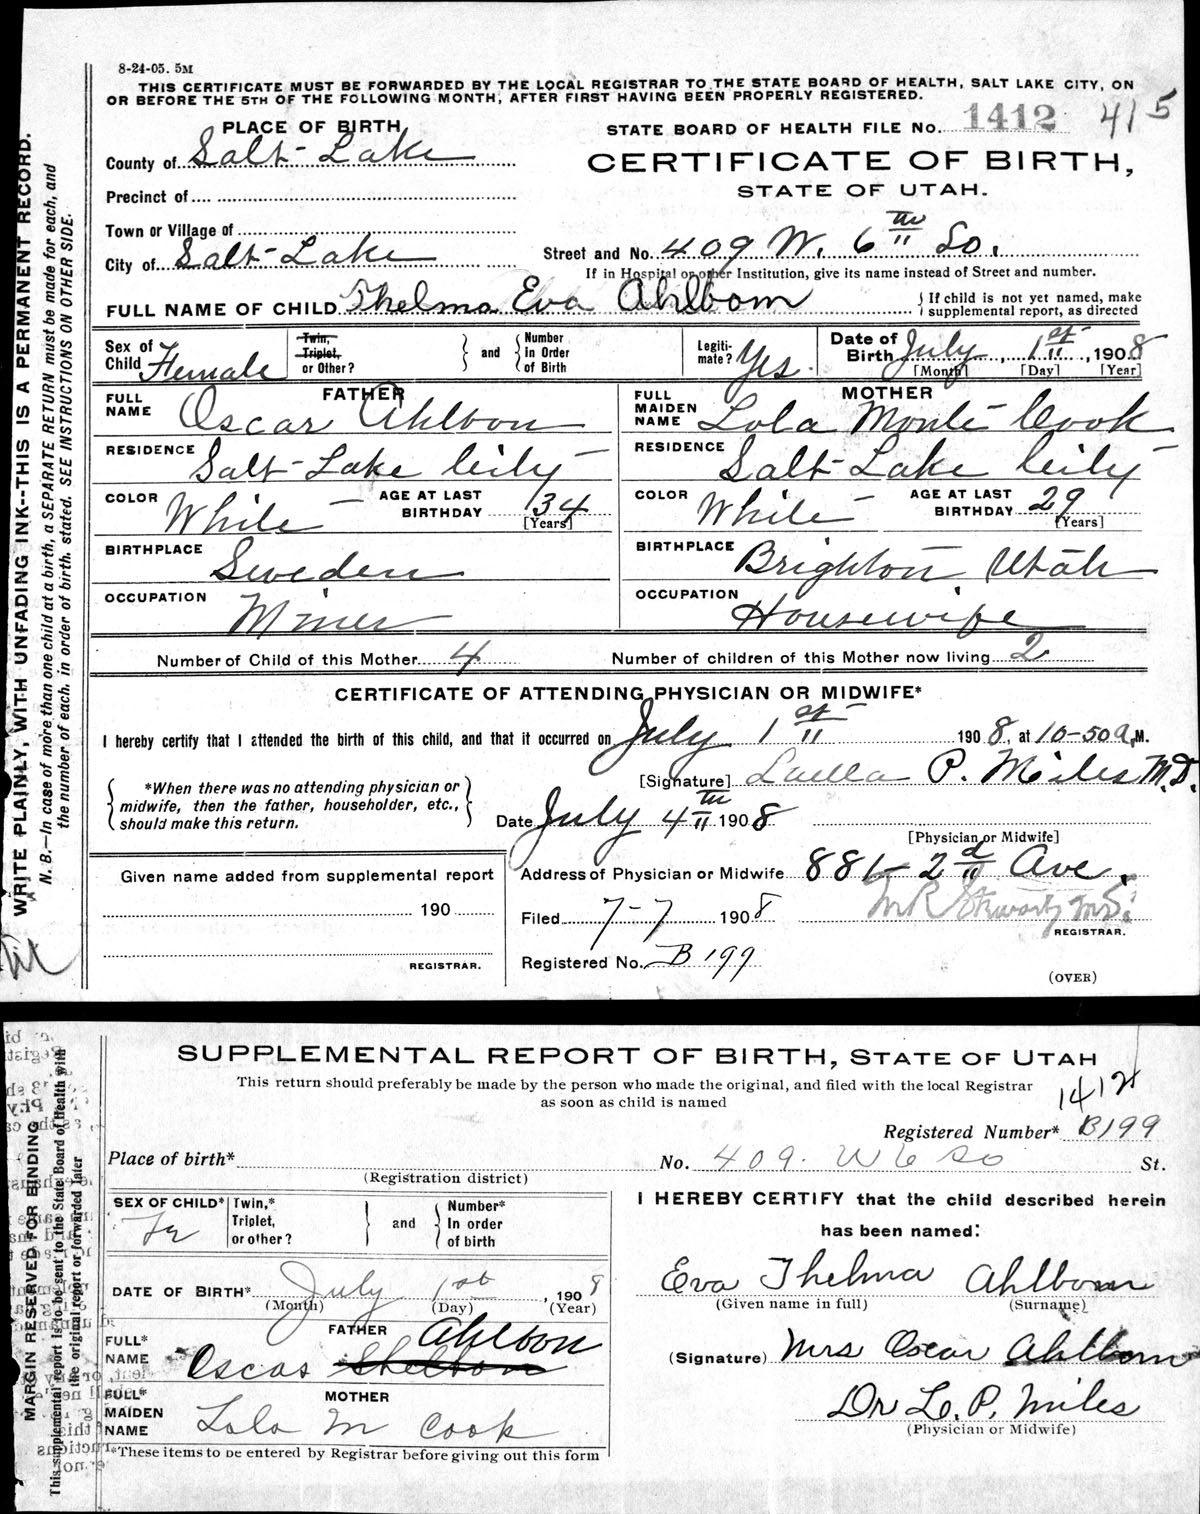 8-24-05. 5M
THIS CERTIFICATE MUST BE FORWARDED BY THE LOCAL REGISTRAR TO THE STATE BOARD OF HEALTH, SALT LAKE CITY, ON
OR BEFORE THE 5TH OF THE FOLLOWING MONTH, AFTER FIRST HAVING BEEN PROPERLY REGISTERED.
STATE BOARD OF HEALTH FILE No. 1412 415
PLACE OF BIRTH
County of Salt Lake
CERTIFICATE OF BIRTH,
STATE OF UTAH.
Precinct of
Town or Village of
City of Salt Lake
Street and No. 409 W. 6th So.
If in Hospital or other Institution, give its name instead of Street and number.
FULL NAME OF CHILD Thelma Eva Ahlbom
If child is not yet named, make
supplemental report, as directed
Sex of Child Female
Twin, Triplet, or Other?
and
Number in Order of Birth
Legitimate? Yes
Date of Birth July 1st, 1908
[Month] [Day] [Year]
FATHER
FULL NAME Oscar Ahlbom
MOTHER
FULL MAIDEN NAME Lola Monte Cook
RESIDENCE Salt Lake City
RESIDENCE Salt Lake City
COLOR White
AGE AT LAST BIRTHDAY 34 [Years]
COLOR White
AGE AT LAST BIRTHDAY 29 [Years]
BIRTHPLACE Sweden
BIRTHPLACE Brighton, Utah
OCCUPATION Miner
OCCUPATION Housewife
Number of Child of this Mother 4
Number of children of this Mother now living 2
CERTIFICATE OF ATTENDING PHYSICIAN OR MIDWIFE*
I hereby certify that I attended the birth of this child, and that it occurred on July 1st 1908, at 10-50 a.M.
*When there was no attending physician or
midwife, then the father, householder, etc.,
should make this return.
[Signature] Luella P. Miles M.D.
Date July 4th 1908
[Physician or Midwife]
Given name added from supplemental report
190
REGISTRAR.
Address of Physician or Midwife 881-2d Ave.
Filed 7-7 1908
REGISTRAR.
Registered No. B199
(OVER)
WRITE PLAINLY, WITH UNFADING INK--THIS IS A PERMANENT RECORD.
N. B.—In case of more than one child at a birth, a SEPARATE RETURN must be made for each, and
the number of each, in order of birth, stated. SEE INSTRUCTIONS ON OTHER SIDE.
SUPPLEMENTAL REPORT OF BIRTH, STATE OF UTAH
This return should preferably be made by the person who made the original, and filed with the local Registrar
as soon as child is named
1412
Registered Number* B199
Place of birth*
(Registration district)
No. 409. W 6 So St.
SEX OF CHILD* Fe
Twin,* Triplet, or other?
and
Number* In order of birth
I HEREBY CERTIFY that the child described herein
has been named:
DATE OF BIRTH* July 1st, 1908
(Month) (Day) (Year)
Eva Thelma Ahlbom
(Given name in full) (Surname)
FATHER
FULL* NAME Oscar Ahlbom
(Signature) Mrs Oscar Ahlbom
MOTHER
FULL* MAIDEN NAME Lola M Cook
Dr L. P. Miles
(Physician or Midwife)
*These items to be entered by Registrar before giving out this form
MARGIN RESERVED FOR BINDING
This supplemental report is to be sent to the State Board of Health with
the original report or forwarded later